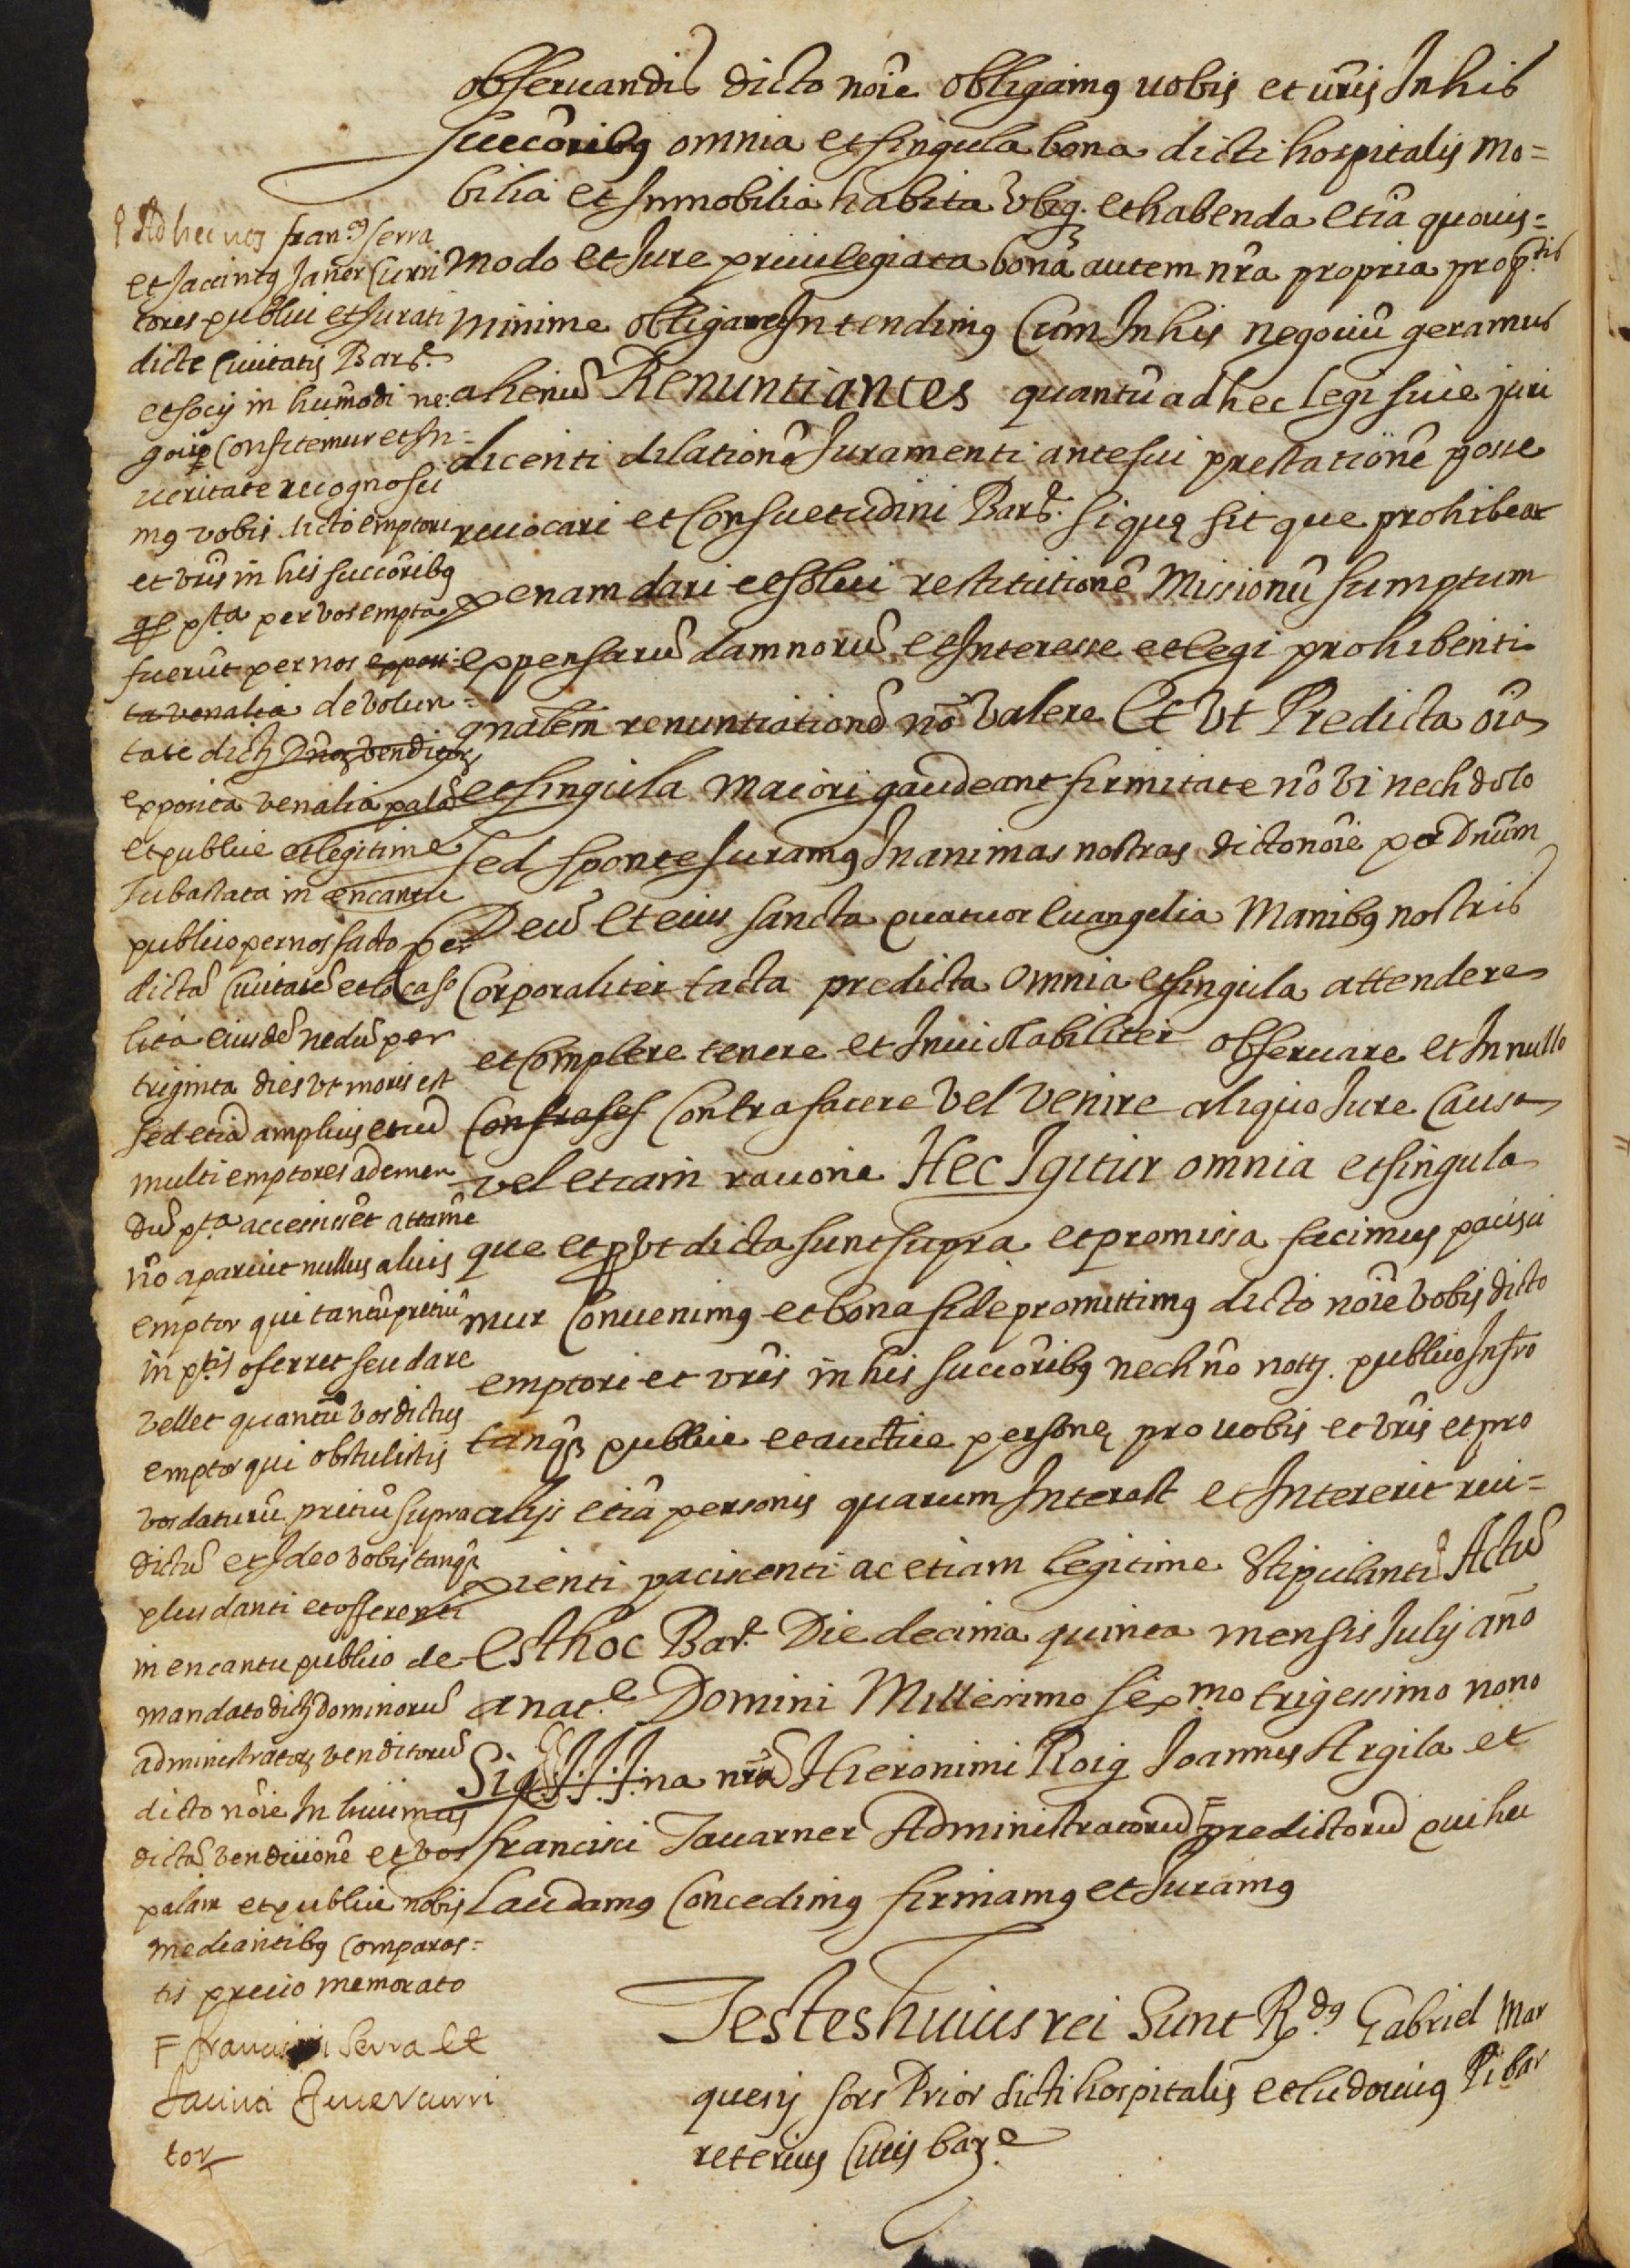 observandis dicto noĩe obligamꝰ vobis et vr̃is In his
succõribꝰ omnia et singula bona dicti hospitalis mo=
bilia et Immobilia habita vbiqꝫ et habenda etiã quovis=
modo et Iure privilegiata bona autem nr̃a propria
minime obligare Intendimꝰ Cum In his negociũ geramus
alienũ Renuntiantes quantũ ad hec legi sive juri
dicenti dilationẽ Iuramenti ante sui prestationẽ posse
revocari et Consuetudini Barẽ. si quę sit que prohibeat
penam dari et solvi restitutionẽ Missionũ sumptum
expensarũ damnorũ et Interesse et legi prohibenti
gnãlem renuntiationẽ nõ valere Et Vt Predicta oĩa
et singula maiori gaudeant firmitate nõ vi nech dolo
sed sponte Iuramꝰ In animas nostras dicto noĩe per Dnũm
Deũ et eius sancta quatuor Evangelia Manibꝰ nostris
Corporaliter tacta predicta omnia et singula attendere
et Complere tenere et Inviolabiliter observare et In nullo
Contrafacere vel venire aliquo Iure Causa
vel etiam ratione Hec Igitur omnia et singula
que et ꝓut dicta sunt supra et promissa facimus pacisci
mur Convenimꝰ et bona fide promittimꝰ dicto noĩe vobis dicto
emptori et vr̃is in his succõribꝰ nech nõ nottꝫ. publico Infr̃o
tanqꝫ publice et auctiẽ personę pro vobis et vr̃is et pro
alijs etiã personis quarum Interest et Intererit reci=
pienti paciscenti ac etiam legitime stipulanti Actũ
est hoc Barẽ. Die decima quinta mensis Iulij año
a nat.e Domini Millesimo sex.mo trigessimo nono
Sig†††na nr̃ã Hieronimi Roig Joannis Argila et
francisci Tavarner Administratorũ F predictorũ qui hec
Laudamꝰ Concedimꝰ firmamꝰ et Iuramꝰ
Testes huius rei Sunt R.dꝰ Gabriel Mar
quesij Prior dicti hospitalis et ludovicꝰ Ribar
reterius Civis bar.e
Ad hec nos fran.ꝰ serra
et Jacintꝰ Janer Curri
tores publici et Iurati
dicte Civitatis Barẽ.
et socij in hũmodi ne=
gocijs Confitemur et In
veritate recognosci
mꝰ vobis dicto emptori
et vr̃is in his succõribꝰ
qd̃ p.ta per vos empta
fuerũt per nos exposi=
ta venalia de volun=
tate dictꝫ Dnõrꝫ venditorꝫ
exposita venalia palã
et publice et legitime
subastata in encantu
publico per nos facto per
dictã Civitatẽ et loca so
lita eiusdẽ nedũ per
triginta dies vt moris est
sed etiã amplius et cũ
multi emptores ad emen
dũ p.ta accessissẽt attamẽ
nõ aparuit nullus alius
emptor qui tantũ pretiũ
in p.tis oferret seu dare
vellet quantũ vos dictus
emptor qui obtulistis
vos daturũ pretiũ supra
dictũ et Ideo vobis tanqꝫ
plus danti et offerenti
in encantu publico de
mandato dictꝫ dominorũ
administratorꝫ venditorũ
dicto noĩe In huiusmodi
dictã venditionẽ et vos
palam et publice nobis
mediantibꝰ Comparas=
tis precio memorato
F francisci serra et
Jacinti Curri
torꝫ